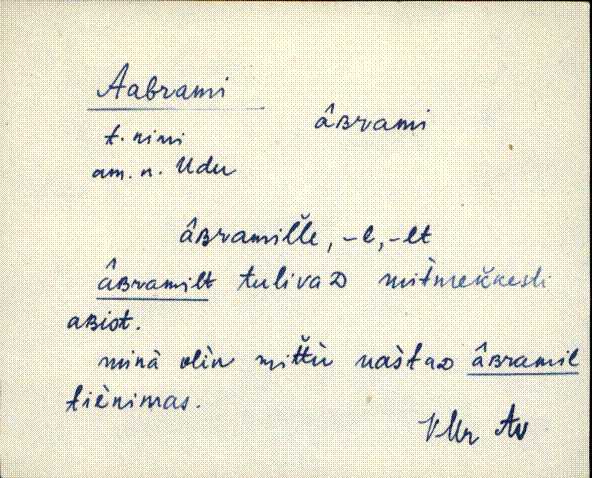 Aabrami
âʙrami
t. nimi
am. n. Udu
âʙramil̆l̆e, -l, -lt
âʙramilt tulivaᴅ mitmek̆k̆esti
aʙist.
minà olìn mit̆t̆ù uàstaᴅ âʙramil
tiènimas.
VMr Av